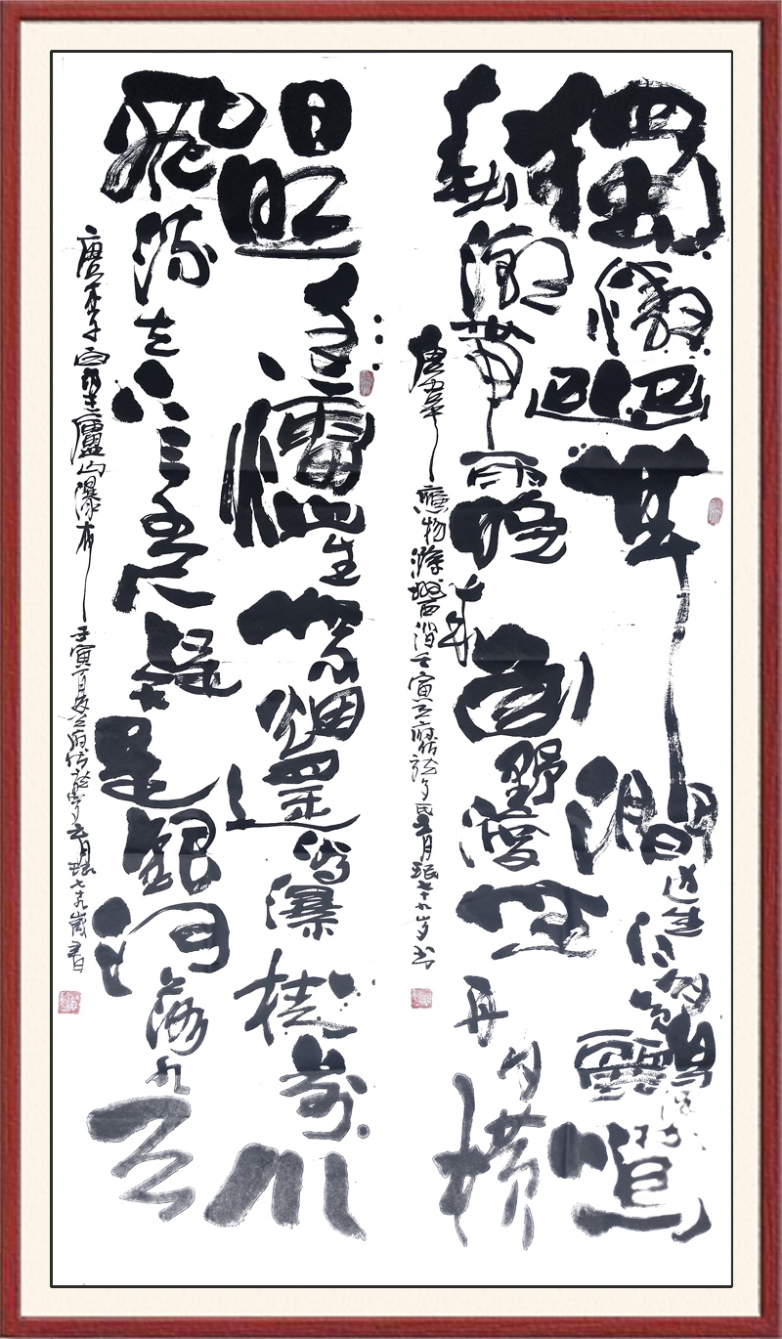 獨憐幽草澗邊生上有黃鸝深樹鳴
春潮帶雨晚來急野渡無人舟自橫
唐韋應物滁州西澗壬寅五月七十九岁书
日照香爐生紫煙遙看瀑布掛前川
飛流直下三千尺疑是銀河落九天
唐李白望廬山瀑布壬寅五月七十九歲書